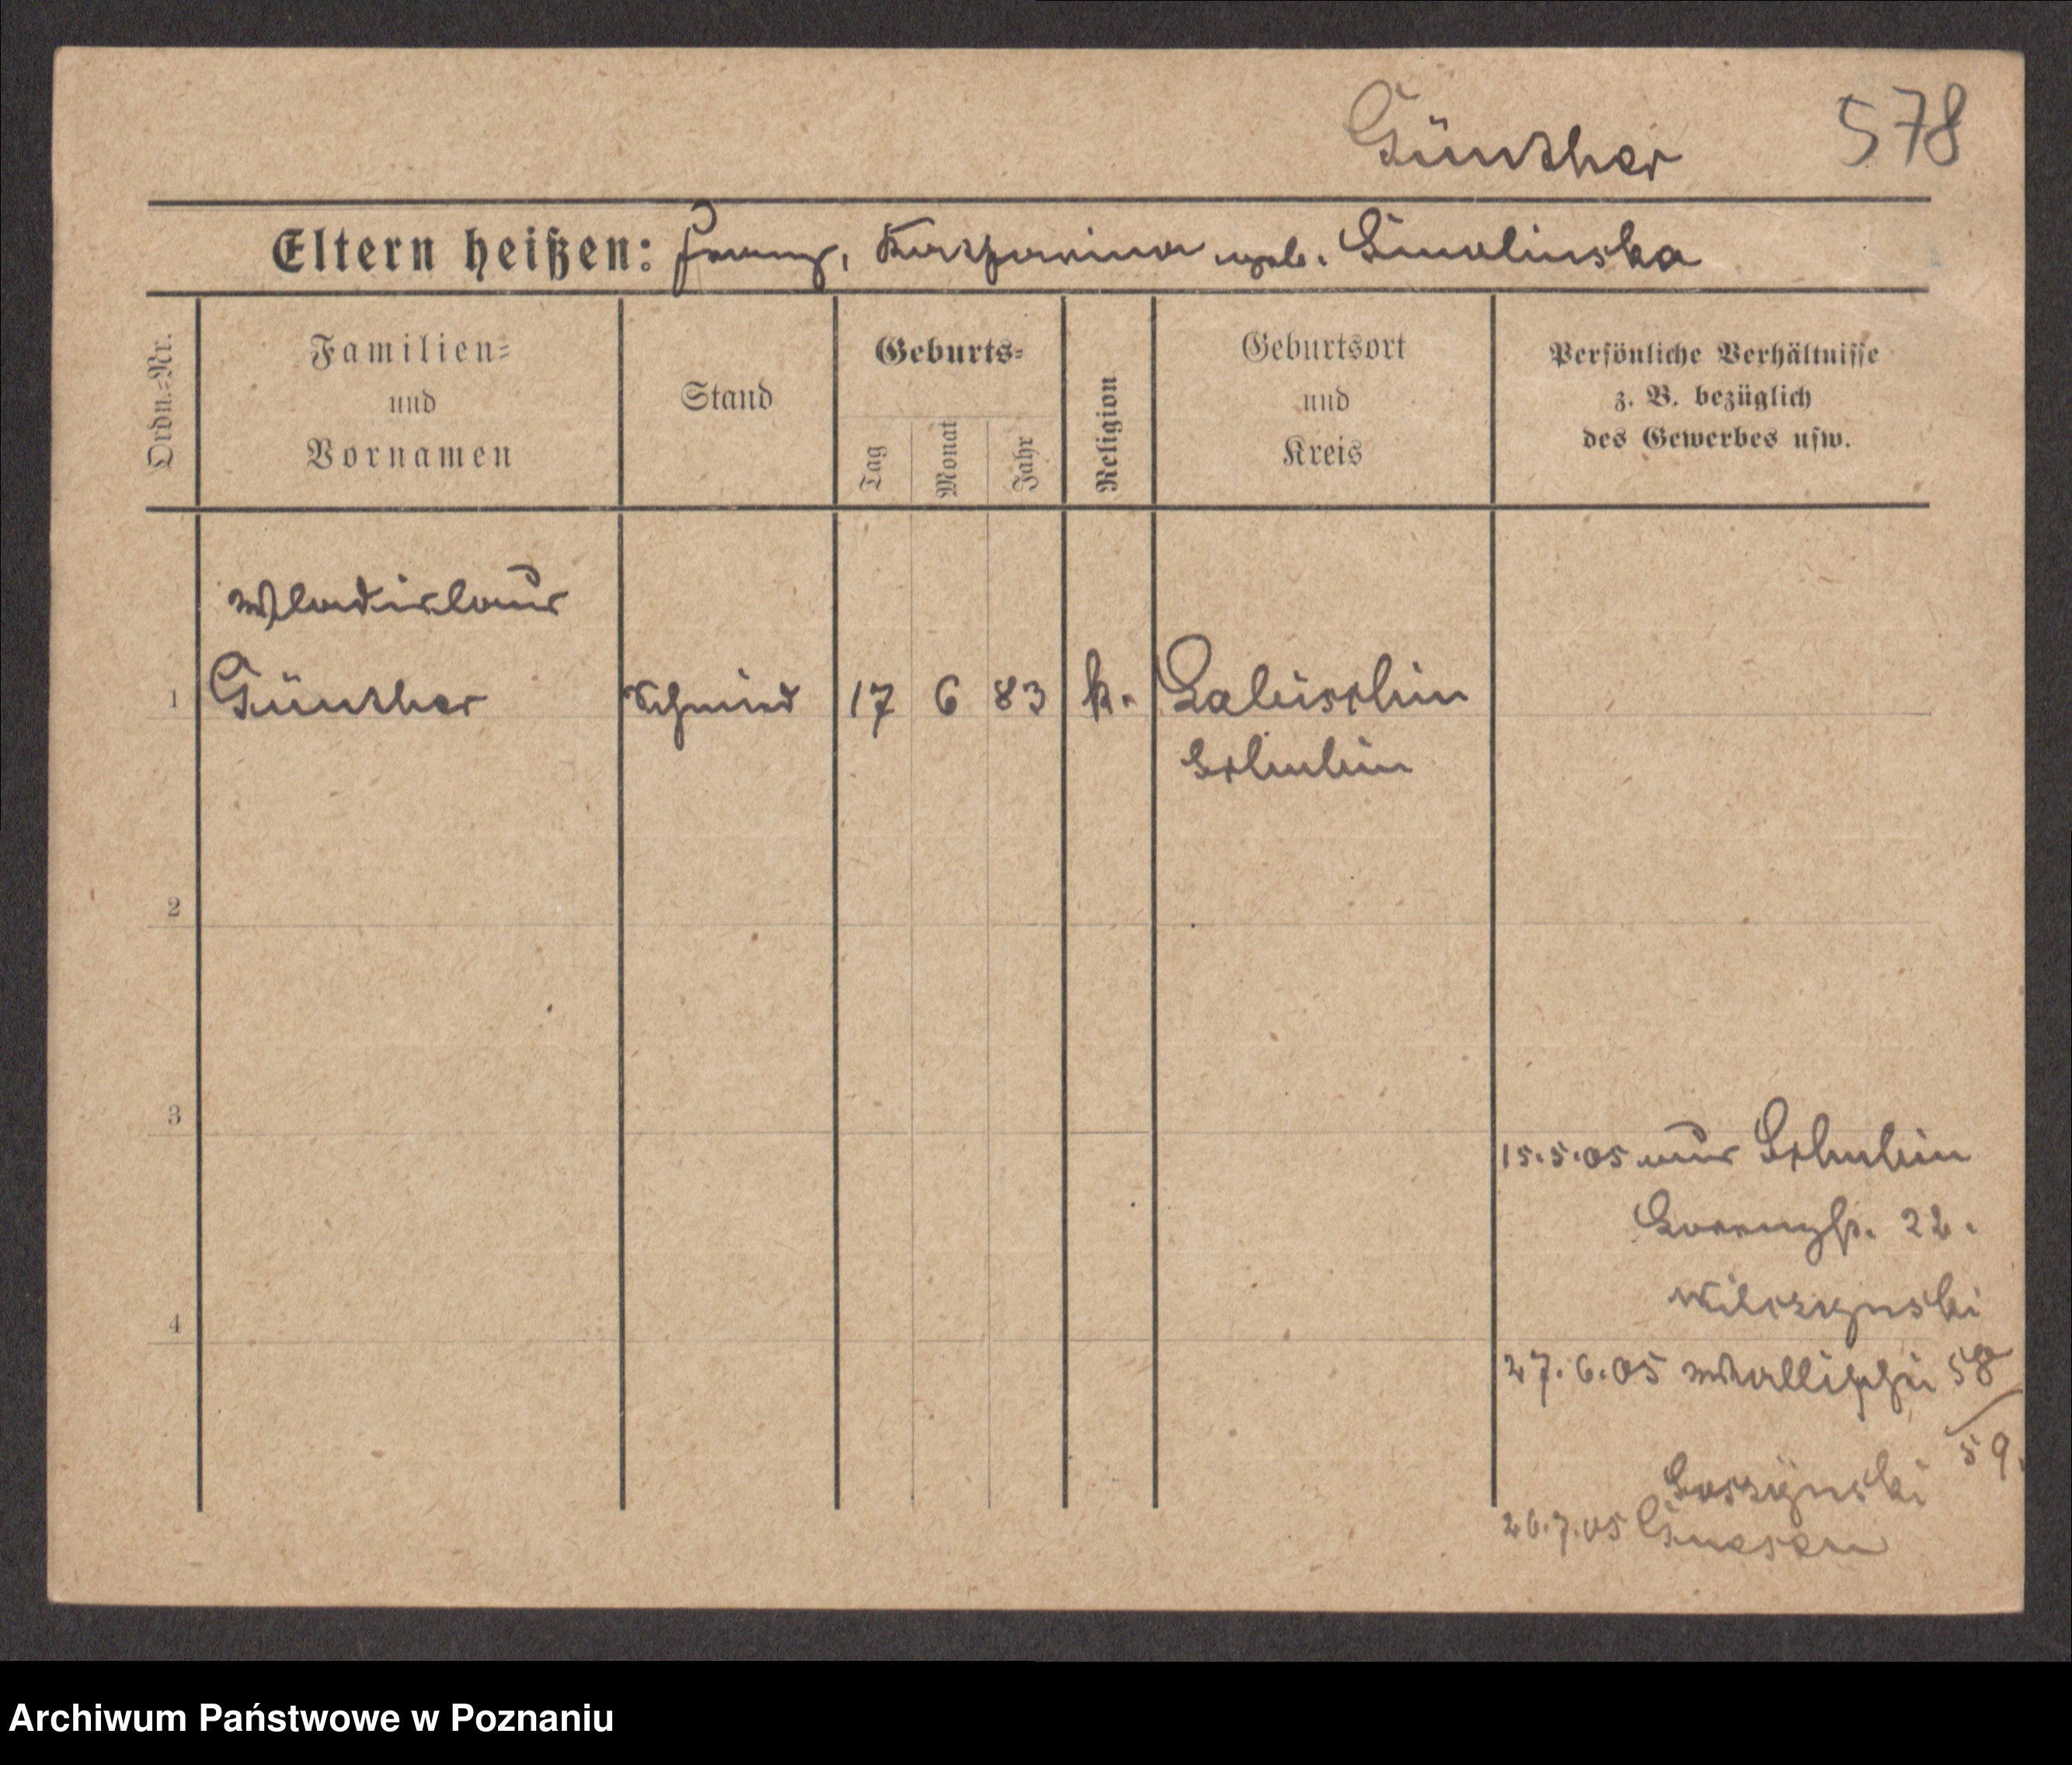 Günther 578
Eltern heißen: Franz, Katharina geb. Smolinska
Ordn.=Nr.
Familien=
und
Vornamen
Stand
Geburts=
Tag
Monat
Jahr
Religion
Geburtsort
und
Kreis
Persönliche Verhältnisse
z. B. bezüglich
des Gewerbes usw.
Wladislaus
1 Günther Schmied 17 6 83 k. Labischin
Schubin
2
3
15.5.05 aus Schubin
22.
Wilczynski
4
27.6.05 Wallischei 58
/59.
26.7.05 Gnesen
Archiwum Państwowe w Poznaniu